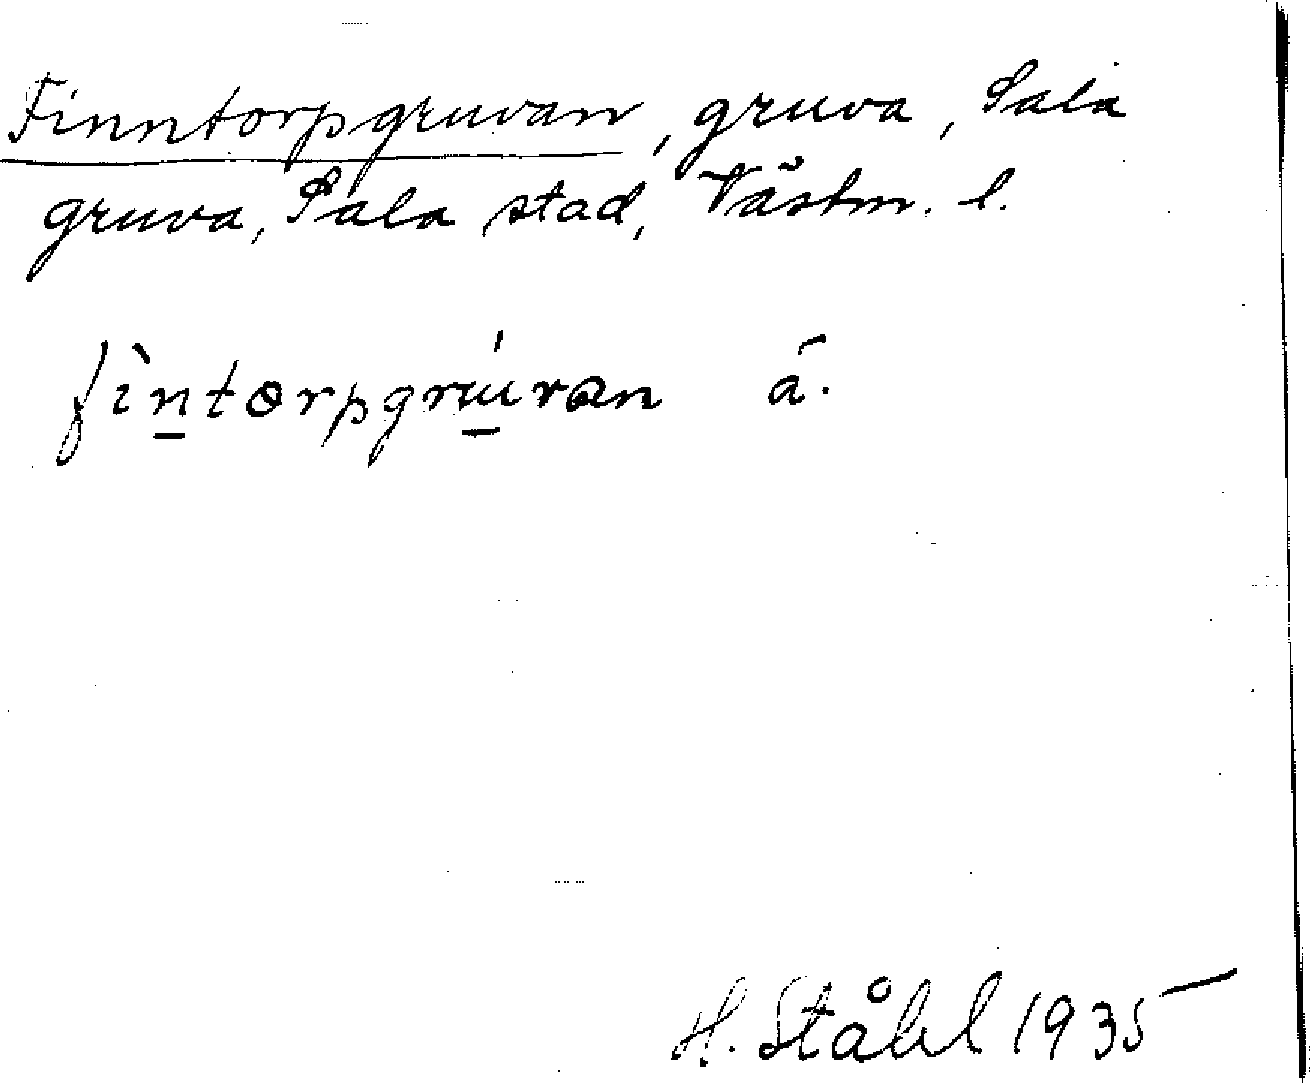 Finntorpgruvan, gruva, Sala
gruva, Sala stad, Västm. l.
fìn̲torpgrú̲van ā.
H. Ståhl 1935